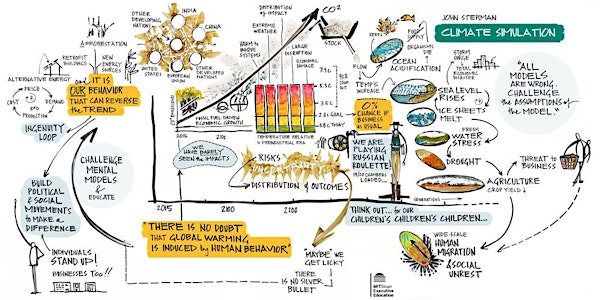 JOHN STERMAN
CLIMATE SIMULATION
"ALL
MODELS
ARE WRONG.
CHALLENGE
the ASSUMPTIONS
of the MODEL."
OTHER
DEVELOPING
NATIONS
INDIA
CHINA
UNITED
STATES
EUROPEAN
OTHER
DEVELOPED
NATIONS
AFFORESTATION
RETROFIT
BUILDINGS
NEW
ENERGY
SOURCES
ALTERNATIVE ENERGY
PRICE
COST
DEMAND
PRODUCTION
IT IS
OUR BEHAVIOR
THAT CAN REVERSE
the TREND
INGENUITY
LOOP
CHALLENGE
MENTAL
MODELS
&
EDUCATE
BUILD
POLITICAL
& SOCIAL
MOVEMENTS
to MAKE a
DIFFERENCE
INDIVIDUALS
STAND UP!
BUSINESSES TOO!!
DISTRIBUTION
of IMPACT
EXTREME
WEATHER
HARM to
LARGE
DISRUPTION
ECONOMIC
DAMAGE
CO2
STOCK
FLOW
EMISSIONS
2015
2100
FOSSIL FUEL-DRIVEN
ECONOMIC GROWTH
TEMPERATURE RELATIVE
to PREINDUSTRIAL ERA
2° GOAL
TODAY
TEMP'S
INCREASE
FOOD
SUPPLY
ORGANISMS
DIE
OCEAN
ACIDIFICATION
STORM
SURGE
ECONOMIC
DISASTER
SEA LEVEL
RISES
ICE SHEETS
MELT
FRESH
WATER
STRESS
DROUGHT
AGRICULTURE
CROP YIELD ↓
THREAT to
BUSINESS
WE
HAVE BARELY
SEEN the IMPACTS
RISKS
UNCERTAINTY
DISTRIBUTION of OUTCOMES
0%
CHANCE IF
BUSINESS
as USUAL
WE ARE
PLAYING
RUSSIAN
ROULETTE
CHAMBERS
LOADED...
GENERATIONS
2015
2100
2200
THINK OUT... to OUR
CHILDREN'S CHILDREN'S CHILDREN...
"THERE IS NO DOUBT
THAT GLOBAL WARMING
IS INDUCED by HUMAN BEHAVIOR"
"MAYBE" WE
GET LUCKY
THERE
IS NO SILVER
BULLET
WIDE-SCALE
HUMAN
MIGRATION
& SOCIAL
UNREST
MIT Sloan
Executive
Education